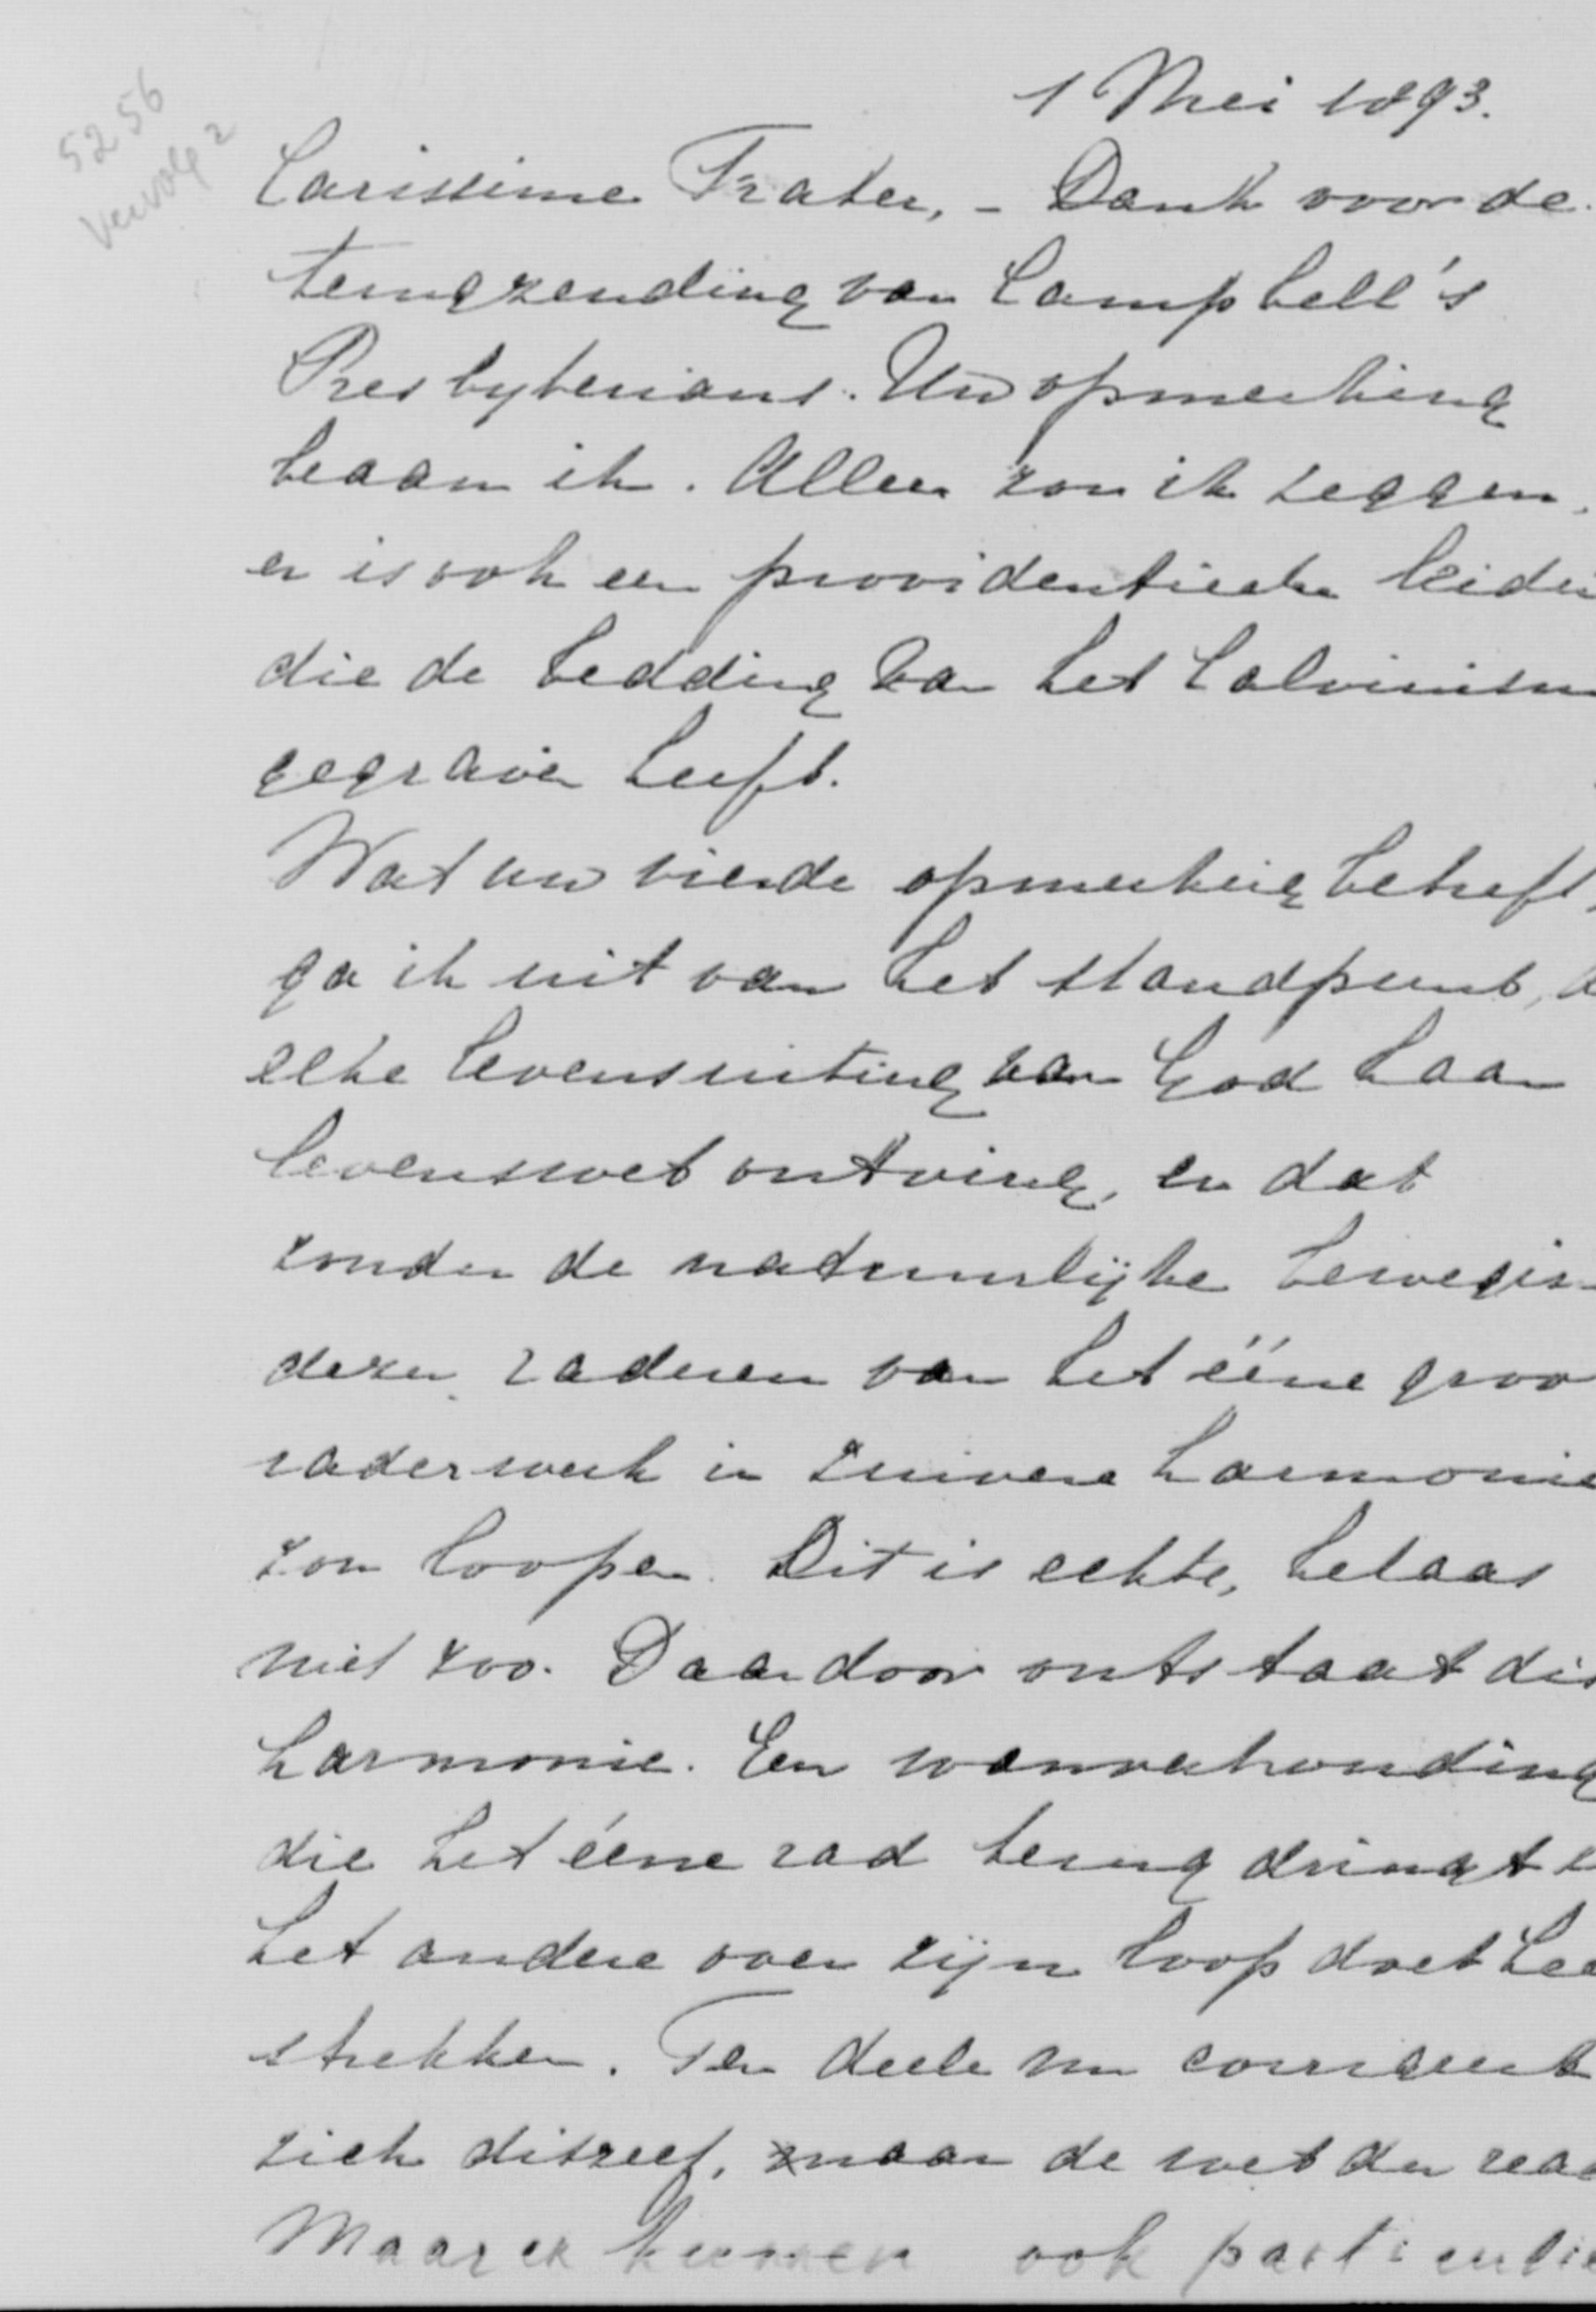 5256
vervolg 2
1 Mei 1893.
Carissime Frater, - Dank voor de
terugzending van Campbell's
Presbyterians. Uw opmerking
beaam ik. Alleen zou ik zeggen,
er is ook een providentieele leidin
die de bedding van het Calvinism
gegraven heeft.
Wat uw vierde opmerking betreft,
ga ik uit van het standpunt, d
elke levensuiting van God haar
levenswet ontving, en dat
zonder de natuurlijke beweging
dezer raderen van het ééne groo
raderwerk in zuivere harmonie
zou loopen. Dit is echter, helaas
niet zoo. Daardoor ontstaat dis
harmonie. Een wanverhouding
die het ééne rad terug dringt e
het andere over zijn loop doet hee
strekken. Ten deele nu corrigeert
zich ditzelf, naar de wet der reac
Maar er kunnen ook particulie